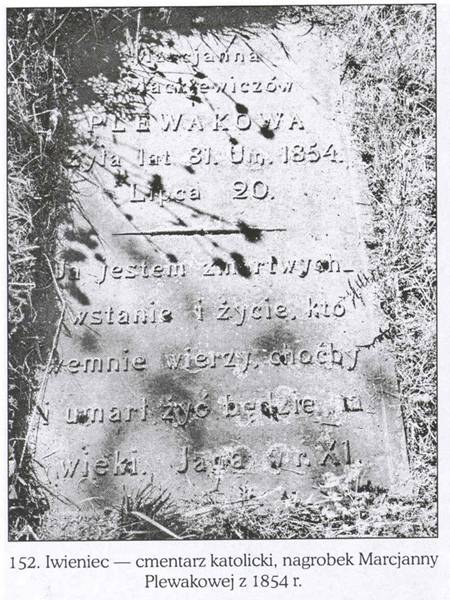 Marcjanna
ackiewiczów
PLEWAKOWA
żyła lat 81. Um. 1854.
Lipca 20.
Ja jestem zmartwych_
wstanie i życie, kto
wemnie wierzy, choćby
umarł żyć będzie, na
wieki. Jana w r. XI.
152. Iwieniec — cmentarz katolicki, nagrobek Marcjanny
Plewakowej z 1854 r.